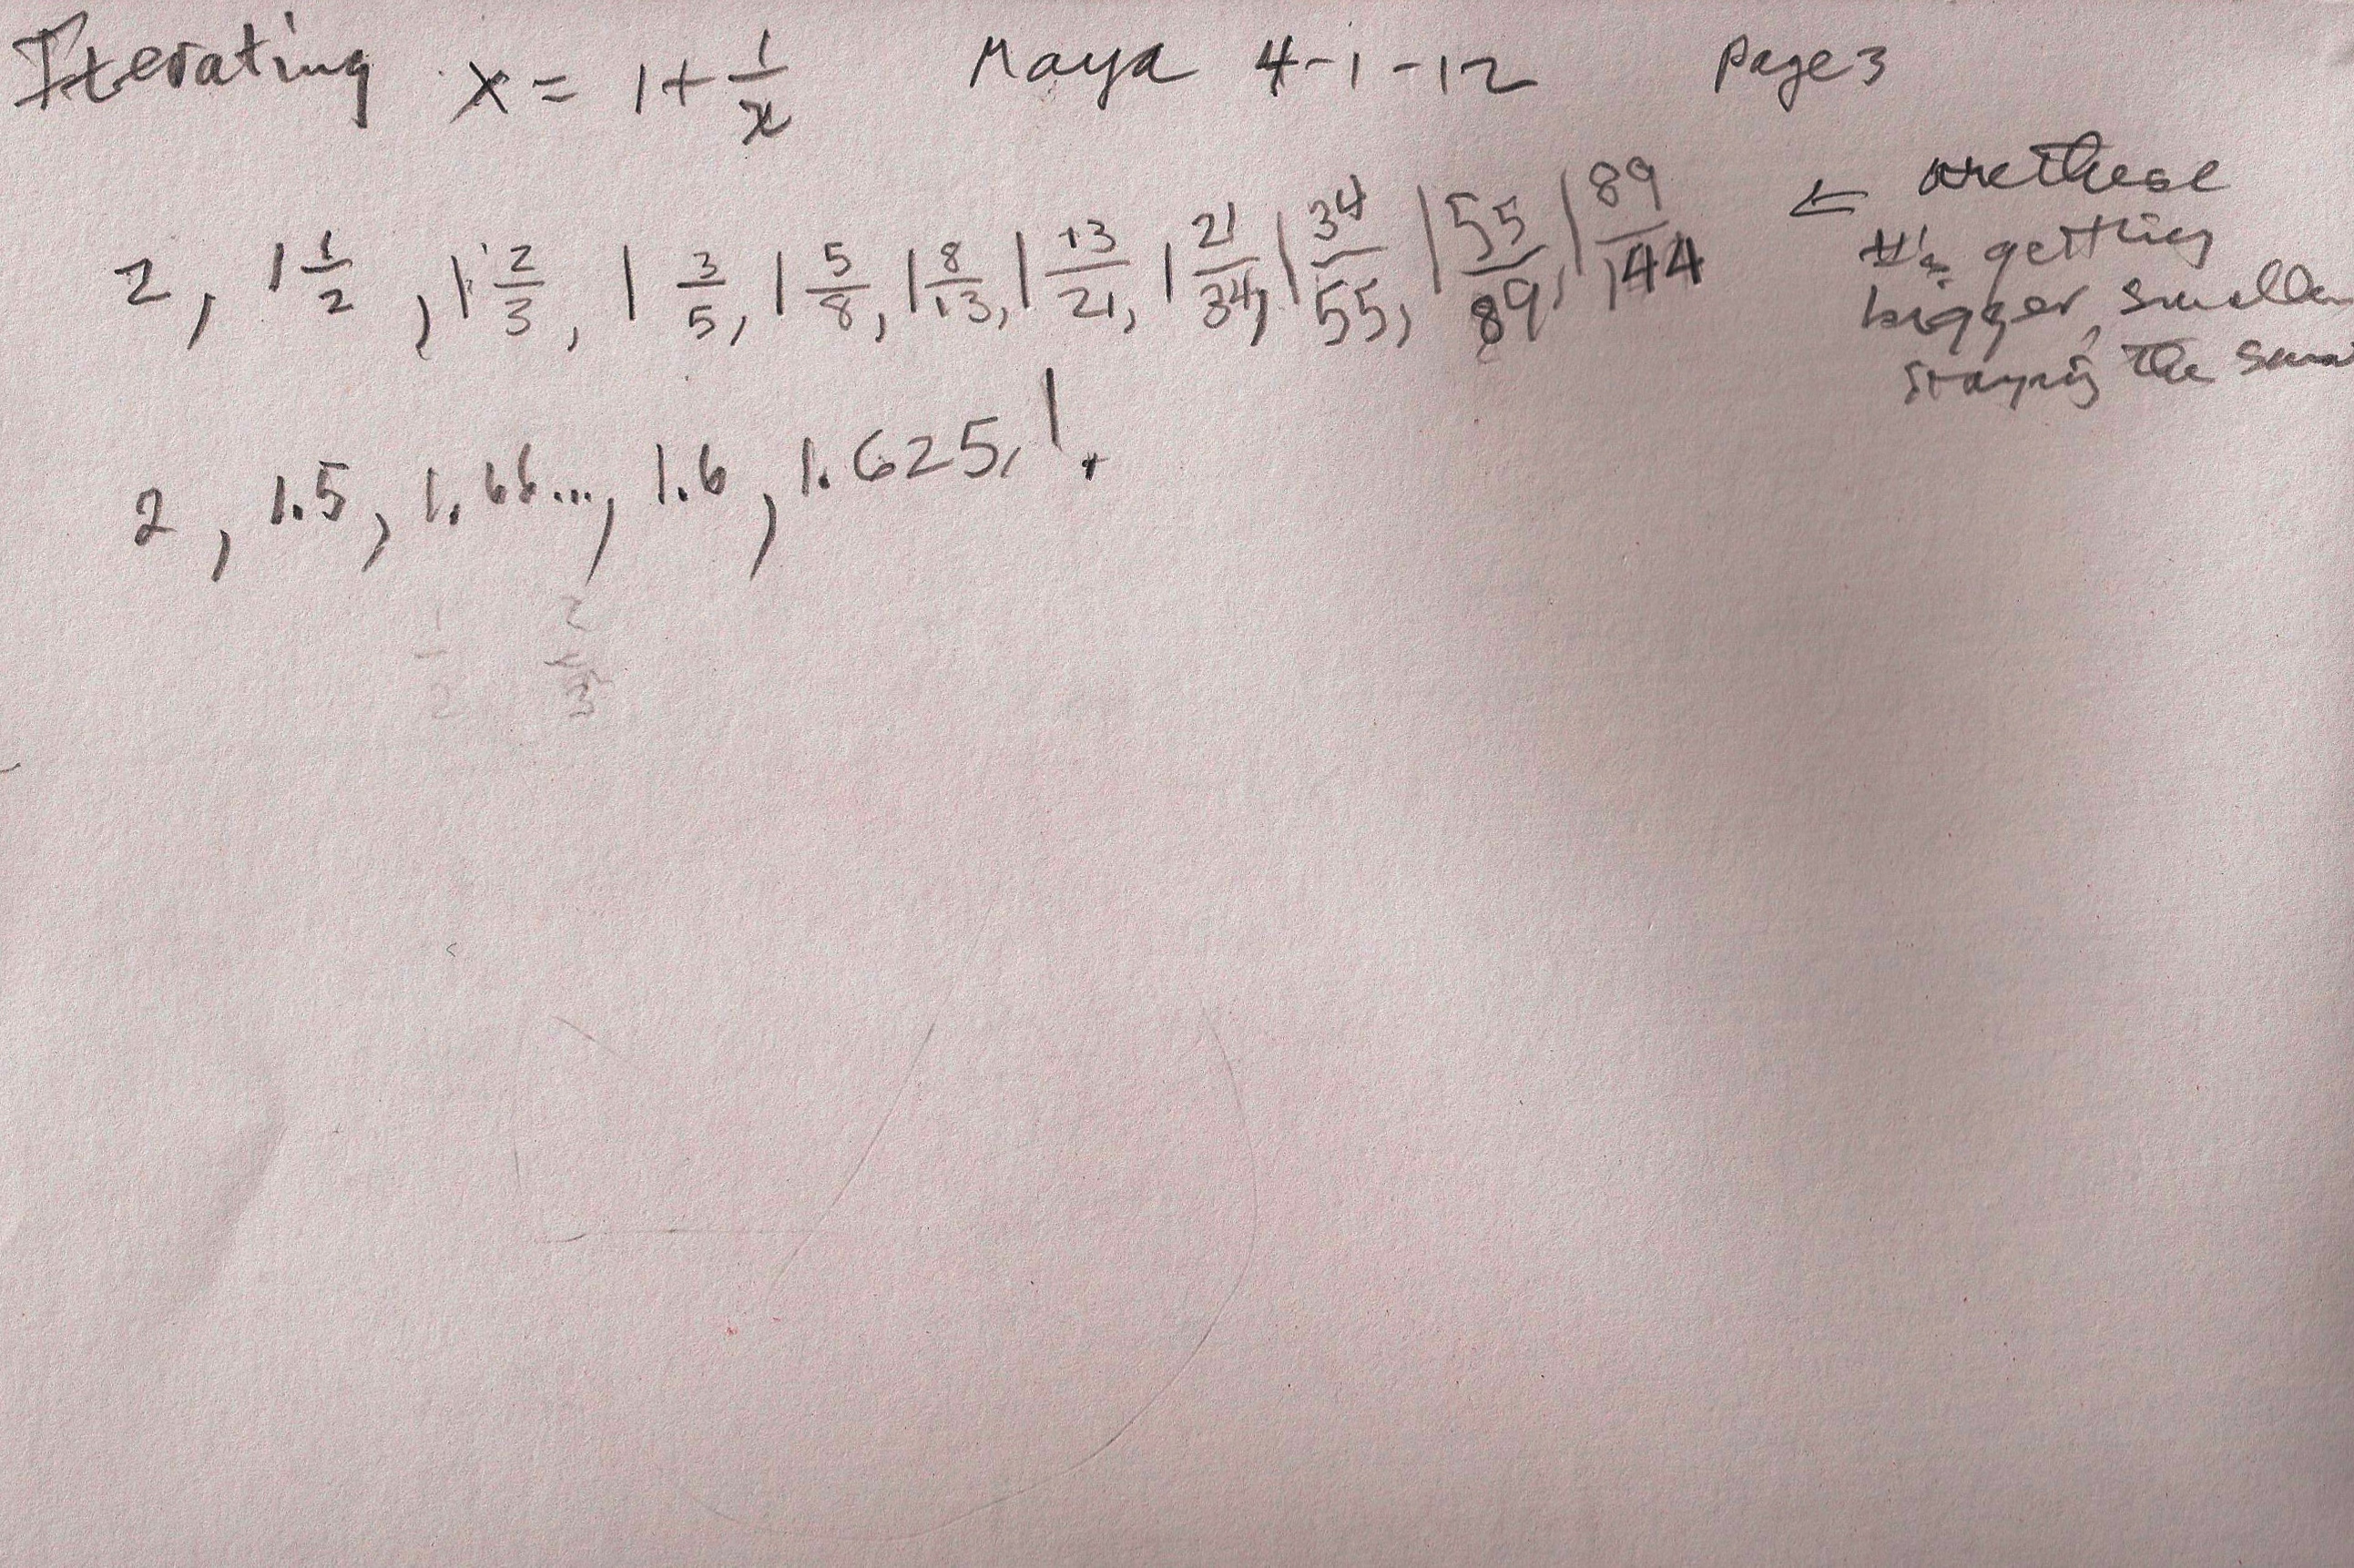 Iterating x = 1 + 1/x Maya 4-1-12 page 3
2, 1 1/2, 1 2/3, 1 3/5, 1 5/8, 1 8/13, 1 13/21, 1 21/34, 1 34/55, 1 55/89, 1 89/144 ← are these
#'s getting
bigger, smaller
staying the same
2, 1.5, 1.66..., 1.6, 1.625, 1.
1/2 2/3